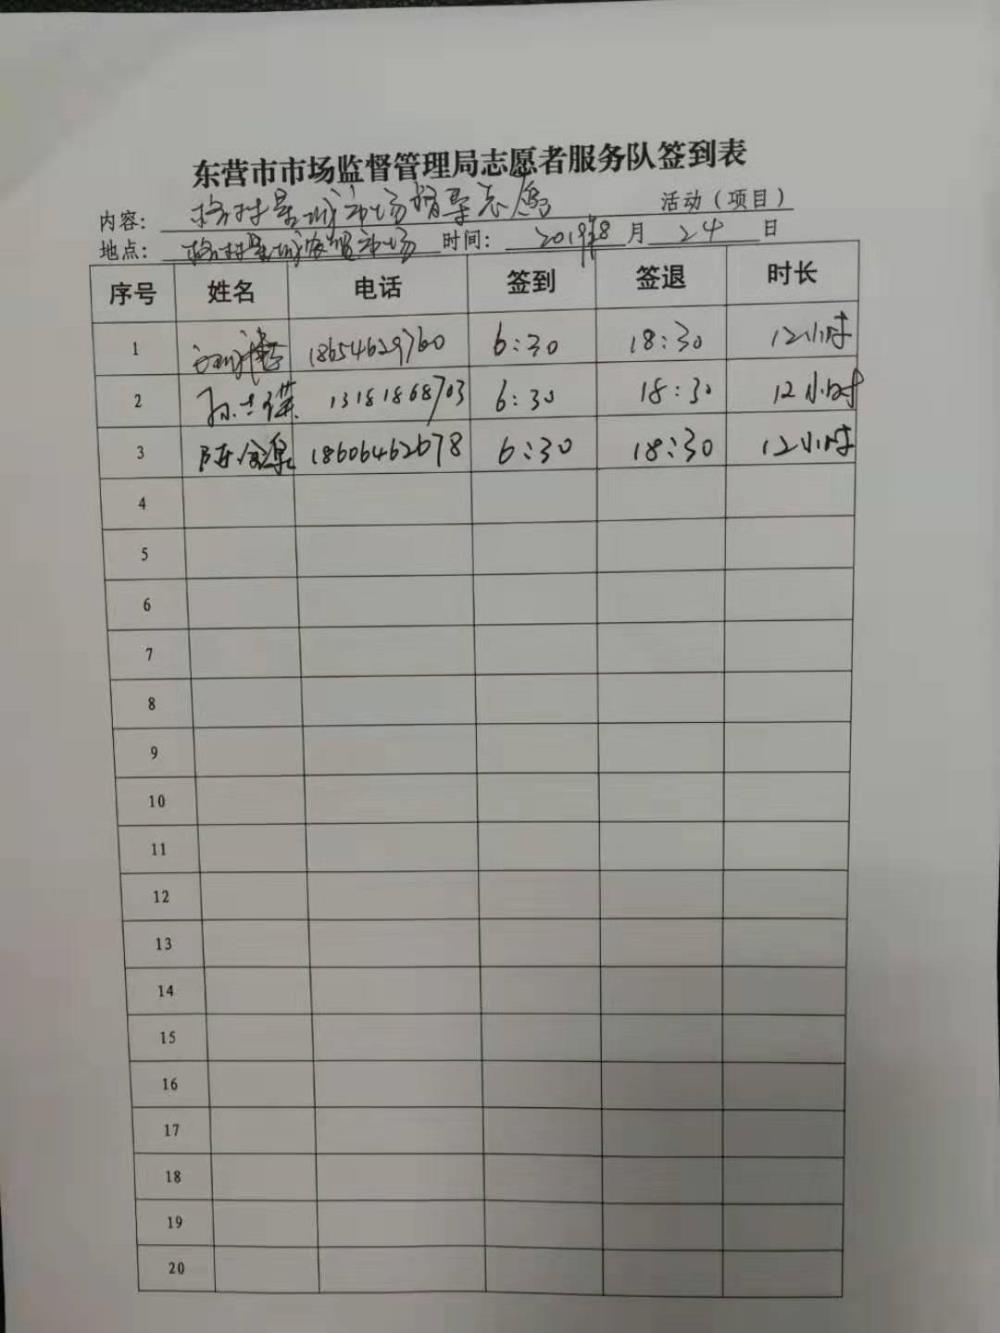 东营市市场监督管理局志愿者服务队签到表
内容： 城市场督导志愿 活动（项目）
地点： 市场 时间： 2019年8 月 24 日
序号 姓名 电话 签到 签退 时长
1 18654629760 6:30 18:30 12小时
2 孙 13181868703 6:30 18:30 12小时
3 陈金泉 18606462678 6:30 18:30 12小时
4
5
6
7
8
9
10
11
12
13
14
15
16
17
18
19
20